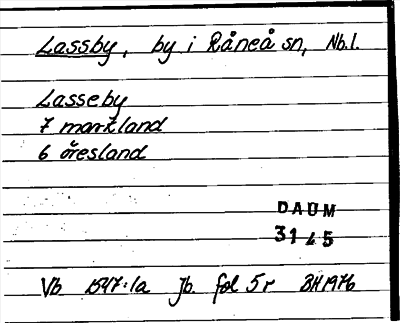 Lassby, by i Råneå sn, Nb.l.
Lasseby
7 markland
6 öresland
DAUM
3145
Vb 1547:1a Jb. fol 5r BH1976